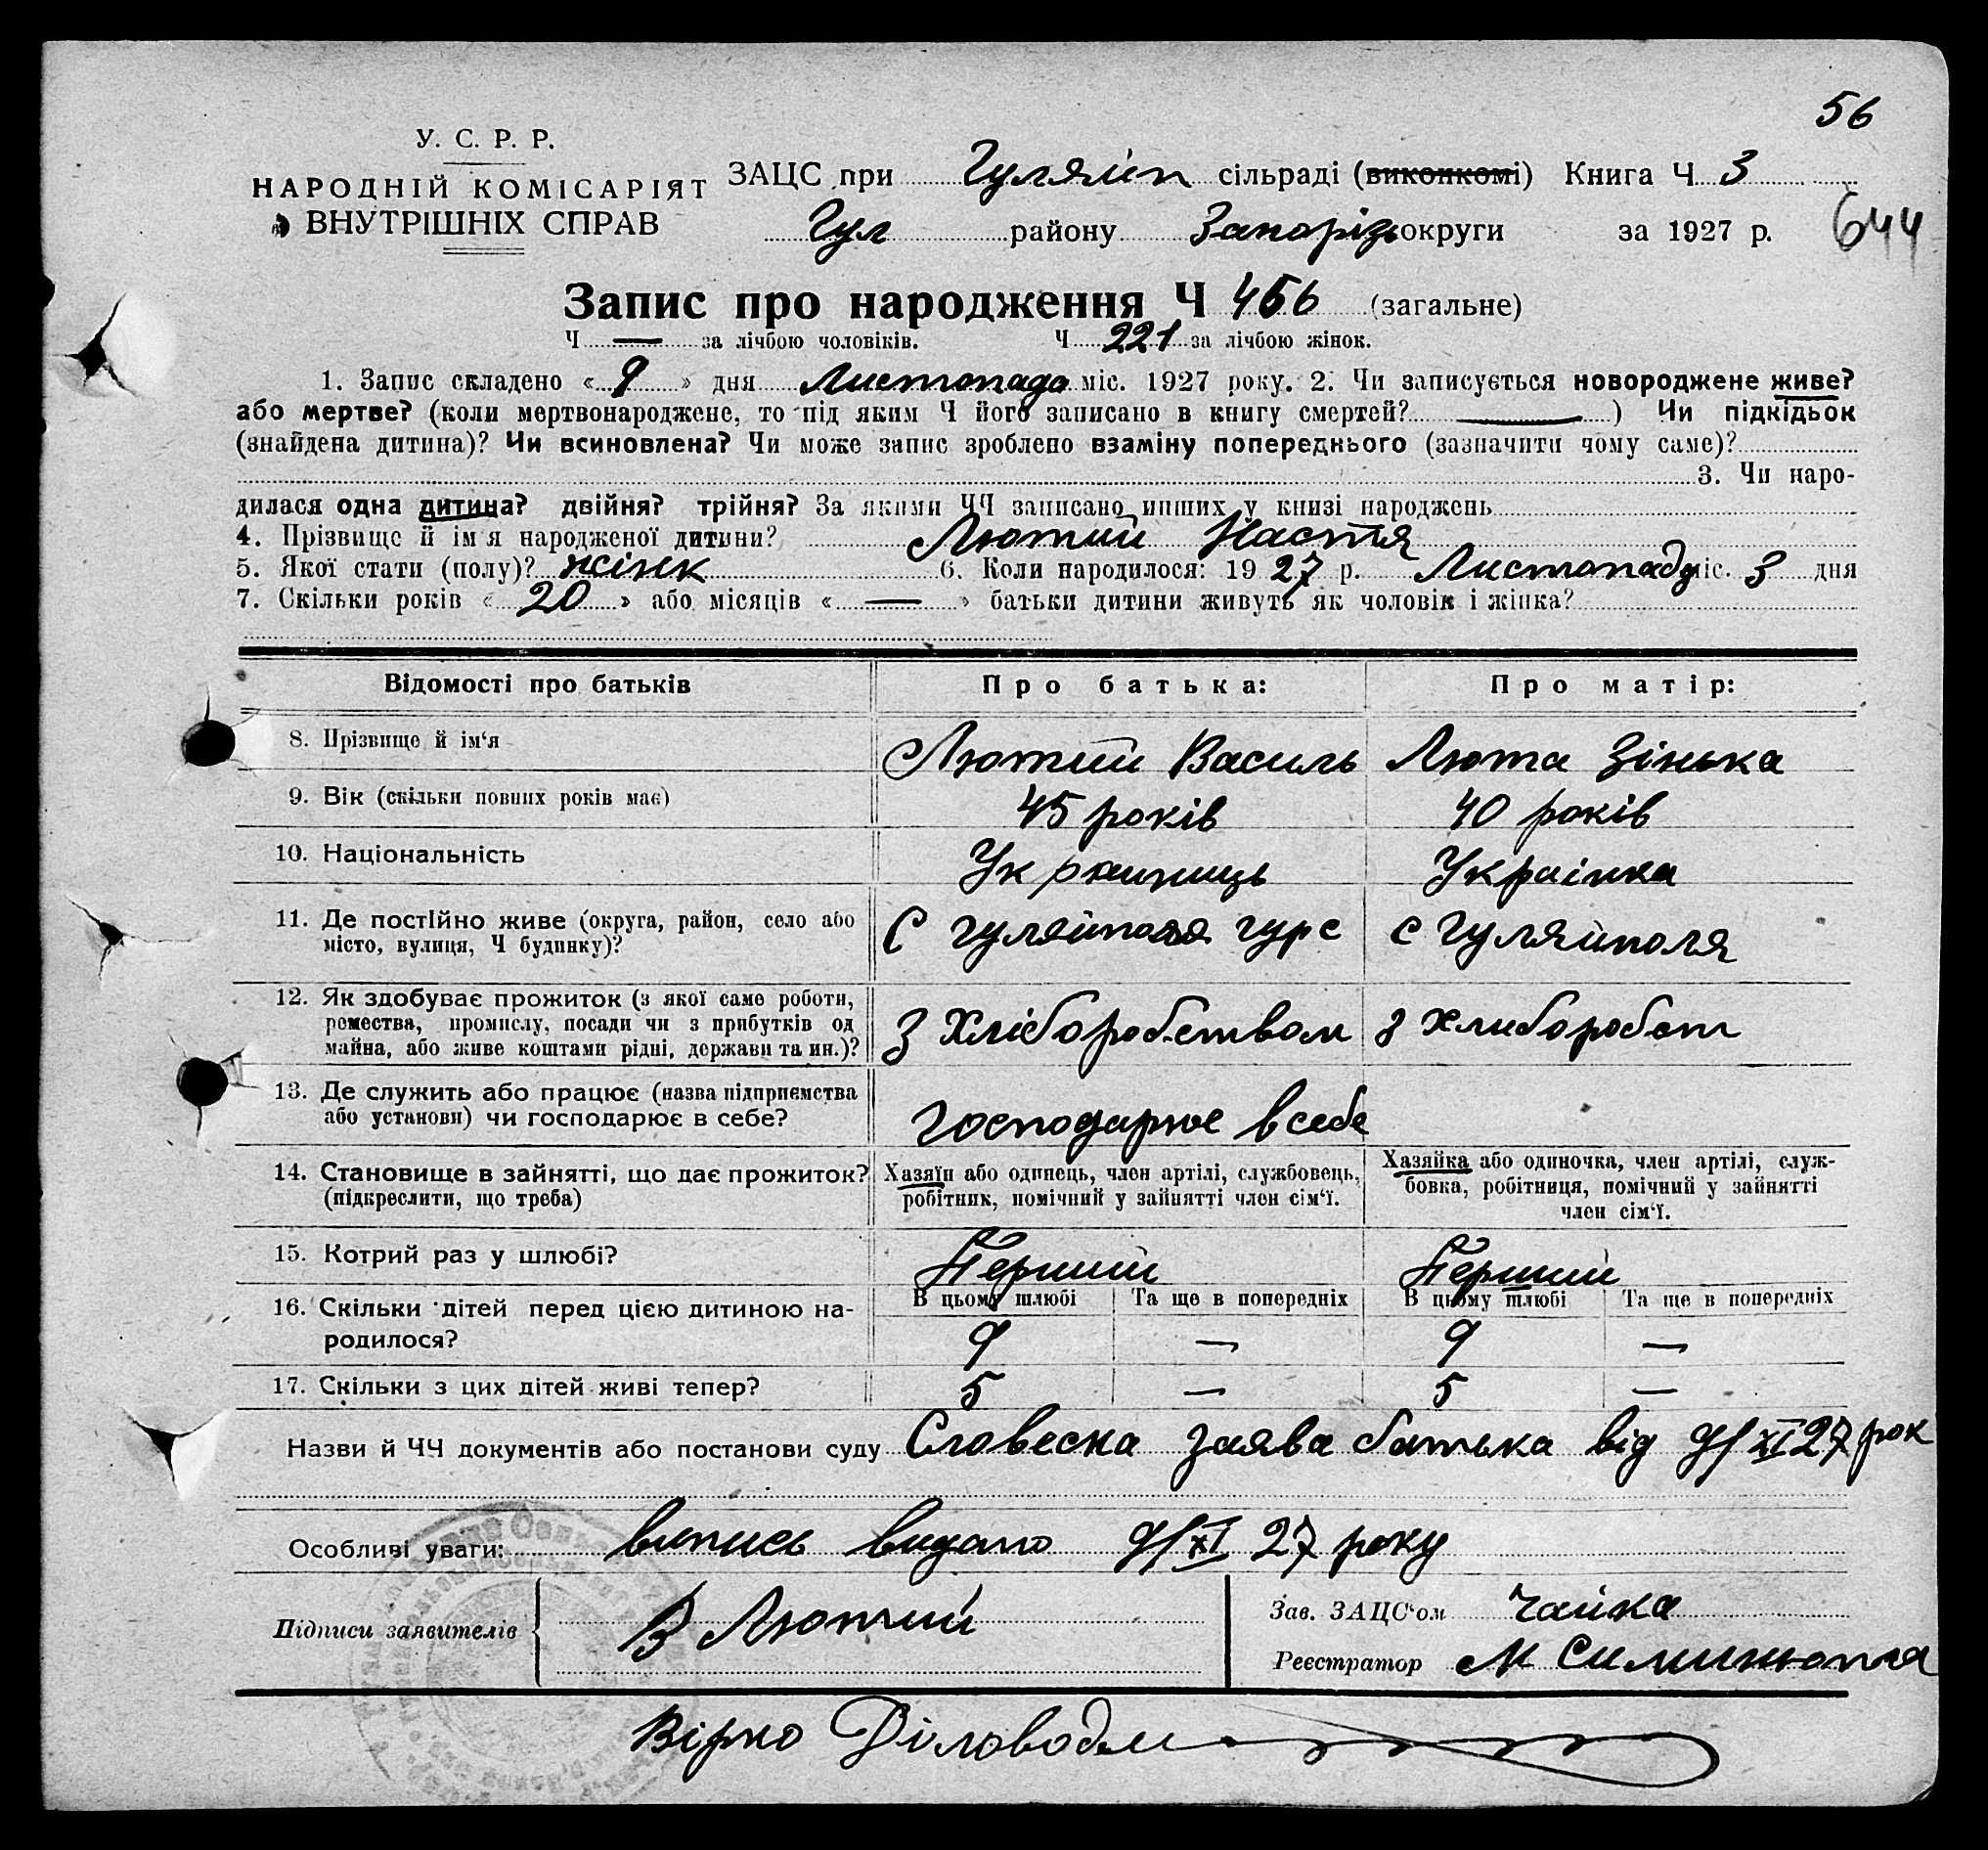 56
У. С. Р. Р.
НАРОДНІЙ КОМІСАРІЯТ
ВНУТРІШНІХ СПРАВ
ЗАЦС при Гуляйп сільраді (виконкомі) Книга Ч 3
Гул району Запорізь округи за 1927 р. 644
Запис про народження Ч 456 (загальне)
Ч — за лічбою чоловіків. Ч 221 за лічбою жінок.
1. Запис складено « 9 » дня Листопада міс. 1927 року. 2. Чи записується новороджене живе?
або мертве? (коли мертвонароджене, то під яким Ч його записано в книгу смертей? — ) Чи підкідьок
(знайдена дитина)? Чи всиновлена? Чи може запис зроблено взаміну попереднього (зазначити чому саме)?
3. Чи наро-
дилася одна дитина? двійня? трійня? За якими ЧЧ записано инших у книзі народжень
4. Прізвище й ім'я народженої дитини? Лютий Настя
5. Якої стати (полу)? жінк 6. Коли народилося: 1927 р. Листопаду міс. 3 дня
7. Скільки років « 20 » або місяців « — » батьки дитини живуть як чоловік і жінка?
Відомості про батьків Про батька: Про матір:
8. Прізвище й ім'я Лютий Василь Люта Зінька
9. Вік (скільки повних років має) 45 років 40 років
10. Національність Украинець Українка
11. Де постійно живе (округа, район, село або С Гуляйполя гурс с Гуляйполя
місто, вулиця, Ч будинку)?
12. Як здобуває прожиток (з якої саме роботи,
ремества, промислу, посади чи з прибутків од З Хліборобством з хлиборобст
майна, або живе коштами рідні, держави та ин.)?
13. Де служить або працює (назва підприємства
або установи) чи господарює в себе? господарює в себе
14. Становище в зайнятті, що дає прожиток? Хазяїн або одинець, член артілі, службовець, Хазяйка або одиночка, член артілі, служ-
(підкреслити, що треба) робітник, помічний у зайнятті член сім'ї. бовка, робітниця, помічний у зайнятті
член сім'ї.
15. Котрий раз у шлюбі? Перший Перший
16. Скільки дітей перед цією дитиною на- В цьому шлюбі Та ще в попередніх В цьому шлюбі Та ще в попередніх
родилося? 9 — 9 —
17. Скільки з цих дітей живі тепер? 5 — 5 —
Назви й ЧЧ документів або постанови суду Словесна заява батька від 9/XI 27 рок
Особливі уваги: випись видано 9/XI 27 року
Підписи заявителів В Лютий
Зав. ЗАЦС'ом Чайка
Реєстратор М
Вірно Діловод